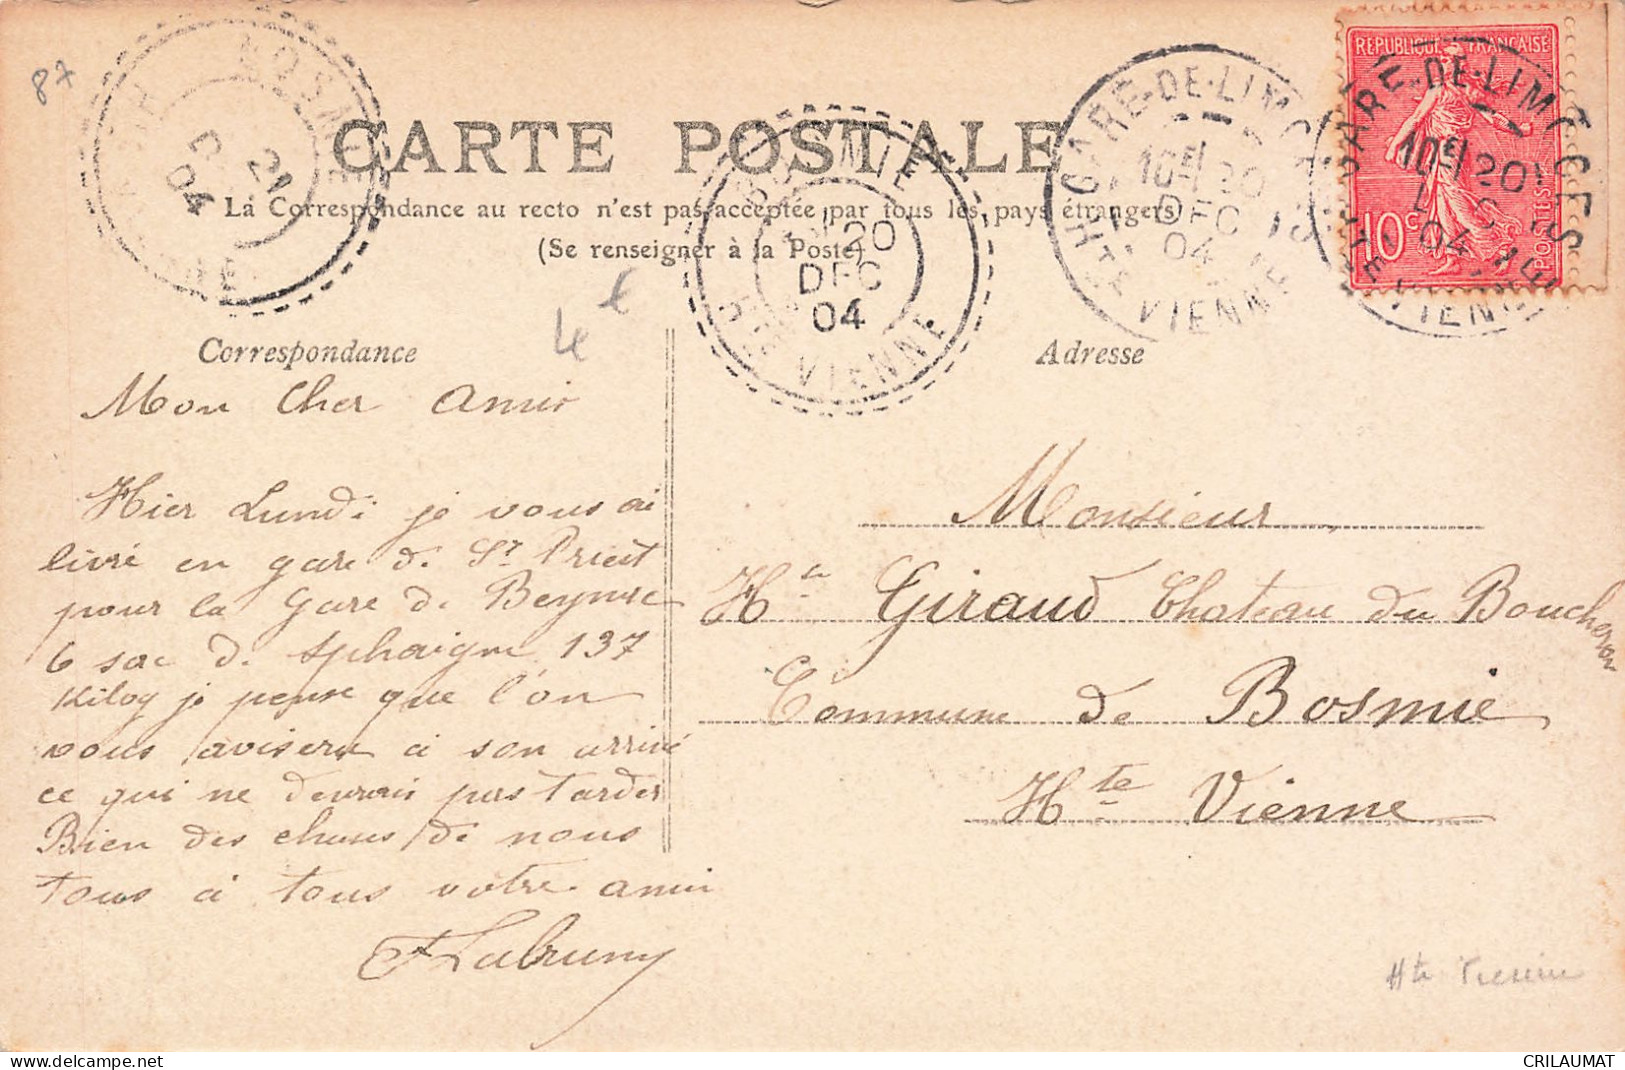 87
BOSMIE
21
DEC
04
VIENNE
CARTE POSTALE
La Correspondance au recto n'est pas acceptée par tous les pays étrangers
(Se renseigner à la Poste)
BOSMIE
20
DEC
04
VIENNE
GARE-DE-LIMOGES
10E 20
DEC
04
HTE VIENNE
REPUBLIQUE FRANÇAISE
10c
POSTES
GARE-DE-LIMOGES
10E 20
04
HTE VIENNE
4 €
Correspondance
Adresse
Mon Cher Ami
Hier Lundi je vous ai
livré en gare de St Priest
pour la Gare de Beynac
6 sac de sphaigne 137
Kilog je pense que l'on
vous avisera à son arrivé
ce qui ne devrais pas tarder
Bien des choses de nous
tous à tous votre ami
Labruny
Monsieur
Hte Giraud Chateau du Boucheron
Commune de Bosmie
Hte Vienne
Hte Vienne
delcampe.net
CRILAUMAT